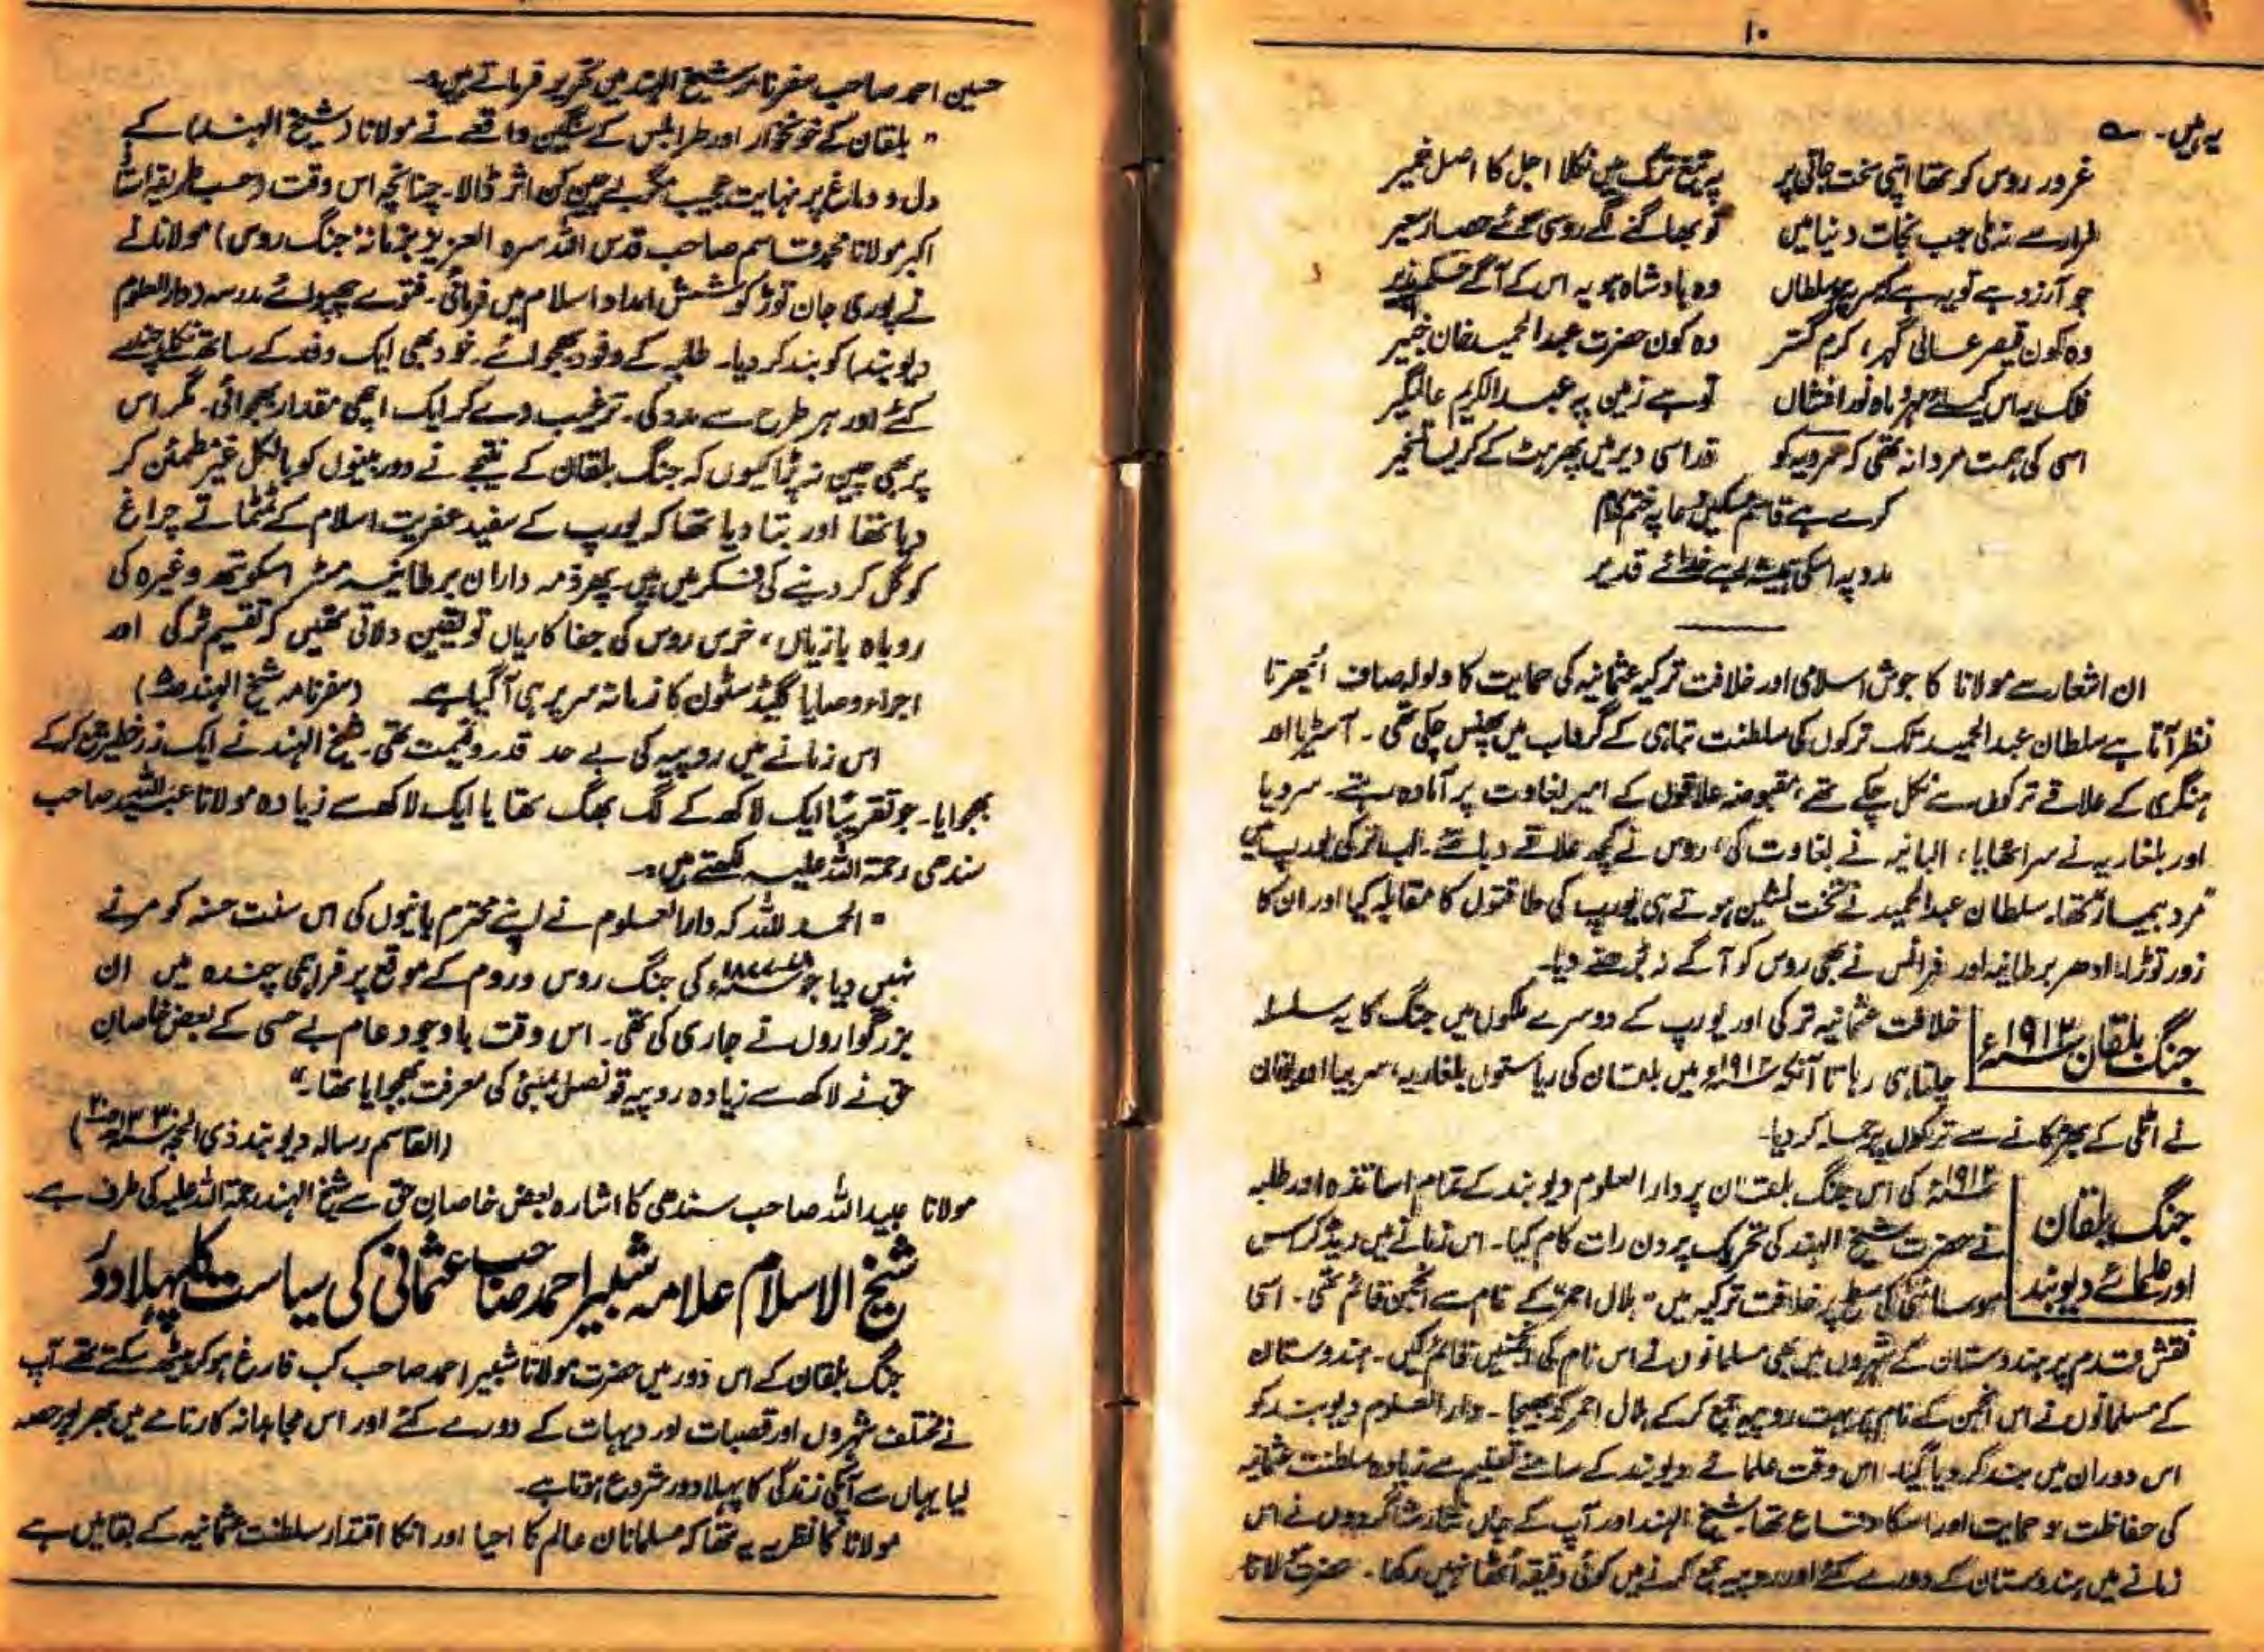 ۱۰
یہ ہیں۔ ؎
غرور روس کو تھا اپنی سخت جانی پر پر تیغ ترک میں نکلا اجل کا اصل خمیر
فرار سے نہ ملی جب نجات دنیا میں تو بھاگنے لگے روسی سوئے حصار سعیر
جو آرزو ہے تو یہ ہے کہ سلطاں وہ بادشاہ ہو یہ اس کے آگے
وہ کون قیصر عالی گہر، کرم گستر وہ کون حضرت عبدالحمید خان خبیر
فلک پہ اس کے لئے مہر و ماہ نور افشاں تو ہے زمین پہ عبدالکریم عالمگیر
اسی کی ہمت مردانہ تھی کہ سرویہ کو ذرا سی دیر میں پھر ہٹ کے کر لیا تسخیر
کرے ہے قاسم مسکیں دعا پہ ختم کلام
مدد پہ اسکی ہمیشہ رہے خدائے قدیر
ان اشعار سے مولانا کا جوش اسلامی اور خلافت ترکیہ عثمانیہ کی حمایت کا ولولہ صاف اُبھرتا
نظر آتا ہے سلطان عبدالحمید تک ترکوں کی سلطنت تباہی کے گرداب میں پھنس چکی تھی۔ آسٹریا اور
ہنگری کے علاقے ترکوں سے نکل چکے تھے، مقبوضہ علاقوں کے امیر بغاوت پر آمادہ رہتے۔ سرویا
اور بلغاریہ نے سر اٹھایا، البانیہ نے بغاوت کی، روس نے کچھ علاقے دبا لئے۔ اب ترکی یورپ میں
مرد بیمار تھا۔ سلطان عبدالحمید نے تخت نشین ہوتے ہی یورپ کی طاقتوں کا مقابلہ کیا اور ان کا
زور توڑا۔ ادھر برطانیہ اور فرانس نے بھی روس کو آگے نہ بڑھنے دیا۔
جنگ بلقان ۱۹۱۳ء خلافت عثمانیہ ترکی اور یورپ کے دوسرے ملکوں میں جنگ کا یہ سلسلہ
چلتا ہی رہا تا آنکہ ۱۹۱۲ء میں بلقان کی ریاستوں بلغاریہ، سربیا اور یونان
نے اٹلی کے بھڑکانے سے ترکوں پر حملہ کر دیا۔
جنگ بلقان ۱۹۱۲ء کی اس جنگ بلقان پر دار العلوم دیوبند کے تمام اساتذہ اور طلبہ
نے حضرت شیخ الہند کی تحریک پر دن رات کام کیا۔ اس زمانے میں ریڈ کراس
اور علمائے دیوبند سوسائٹی کی سطح پر خلافت ترکیہ میں "ہلال احمر" کے نام سے انجمن قائم تھی۔ اسی
نقش قدم پر ہندوستان کے شہروں میں بھی مسلمانوں نے اس نام کی انجمنیں قائم کیں۔ ہندوستان
کے مسلمانوں نے اس انجمن کے نام پر بہت روپیہ جمع کر کے ہلال احمر کو بھیجا۔ دار العلوم دیوبند کو
اس دوران میں بند کر دیا گیا۔ اس وقت علمائے دیوبند کے سامنے تعلیم سے زیادہ سلطنت عثمانیہ
کی حفاظت و حمایت اور اسکا دفاع تھا۔ شیخ الہند اور آپ کے جاں نثار شاگردوں نے اس
زمانے میں ہندوستان کے دورے کئے اور روپیہ جمع کرنے میں کوئی دقیقہ اُٹھا نہیں رکھا۔ حضرت مولانا
حسین احمد صاحب سفرنامہ شیخ الہند میں تحریر فرماتے ہیں۔
"بلقان کے خونخوار اور طرابلس کے سنگین واقعے نے مولانا (شیخ الہند) کے
دل و دماغ پر نہایت عجیب مگر بے چین کن اثر ڈالا۔ چنانچہ اس وقت (حسب طریقہ استاذ
اکبر مولانا محمد قاسم صاحب قدس اللہ سرہ العزیز بزمانہ جنگ روس) مولانا نے
نے پوری جان توڑ کوشش امداد اسلام میں فرمائی۔ فتوے چھپوائے مدرسہ (دارالعلوم
دیوبند) کو بند کر دیا۔ طلبہ کے وفود بھجوائے۔ خود بھی ایک وفد کے ساتھ نکلے چندے
کئے اور ہر طرح سے مدد کی۔ ترغیب دے کر ایک اچھی مقدار بھجوائی۔ مگر اس
پر بھی چین نہ پڑا کیوں کہ جنگ بلقان کے نتیجے نے دور بینوں کو بالکل غیر مطمئن کر
دیا تھا اور بتا دیا تھا کہ یورپ کے سفید عفریت اسلام کے ٹمٹماتے چراغ
کو گل کر دینے کی فکر میں ہیں۔ پھر ذمہ داران برطانیہ مسٹر اسکویتھ وغیرہ کی
روباہ بازیاں، خرس روس کی جفا کاریاں تو یقین دلاتی تھیں کہ تقسیم ٹرکی اور
اجراء وصایا گلیڈ سٹون کا زمانہ سر پر ہی آ گیا ہے (سفرنامہ شیخ الہند)
اس زمانے میں روپیہ کی بے حد قدر و قیمت تھی۔ شیخ الہند نے ایک زر خطیر جمع کر کے
بھجوایا۔ جو تقریباً ایک لاکھ کے لگ بھگ تھا یا ایک لاکھ سے زیادہ مولانا عبیداللہ صاحب
سندھی رحمۃ اللہ علیہ لکھتے ہیں۔
"الحمد للہ کہ دار العلوم نے اپنے محترم بانیوں کی اس سنت حسنہ کو مرنے
نہیں دیا جو کی جنگ روس و روم کے موقع پر فراہمی چندہ میں ان
بزرگواروں نے جاری کی تھی۔ اس وقت باوجود عام بے حسی کے بعض خاصان
حق نے لاکھ سے زیادہ روپیہ قونصل بمبئی کی معرفت بھجوایا تھا۔"
(القاسم رسالہ دیوبند ذی الحجہ
مولانا عبیداللہ صاحب سندھی کا اشارہ بعض خاصان حق سے شیخ الہند رحمۃ اللہ علیہ کی طرف ہے۔
شیخ الاسلام علامہ شبیر احمد صاحب عثمانی کی سیاست کا پہلا دور
جنگ بلقان کے اس دور میں حضرت مولانا شبیر احمد صاحب کب فارغ ہو کر بیٹھ سکتے تھے آپ
نے مختلف شہروں اور قصبات اور دیہات کے دورے کئے اور اس مجاہدانہ کارنامے میں بھرپور حصہ
لیا یہاں سے آپکی زندگی کا پہلا دور شروع ہوتا ہے۔
مولانا کا نظریہ یہ تھا کہ مسلمانان عالم کا احیا اور انکا اقتدار سلطنت عثمانیہ کے بقا میں ہے